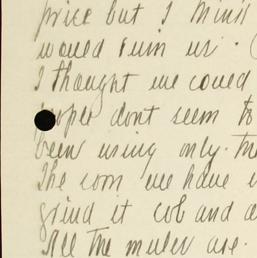 price but I think
would ruin us. (
I thought we could
people dont seem to
been using only. the
The corn we have
grind it cob and a
All the mules are.